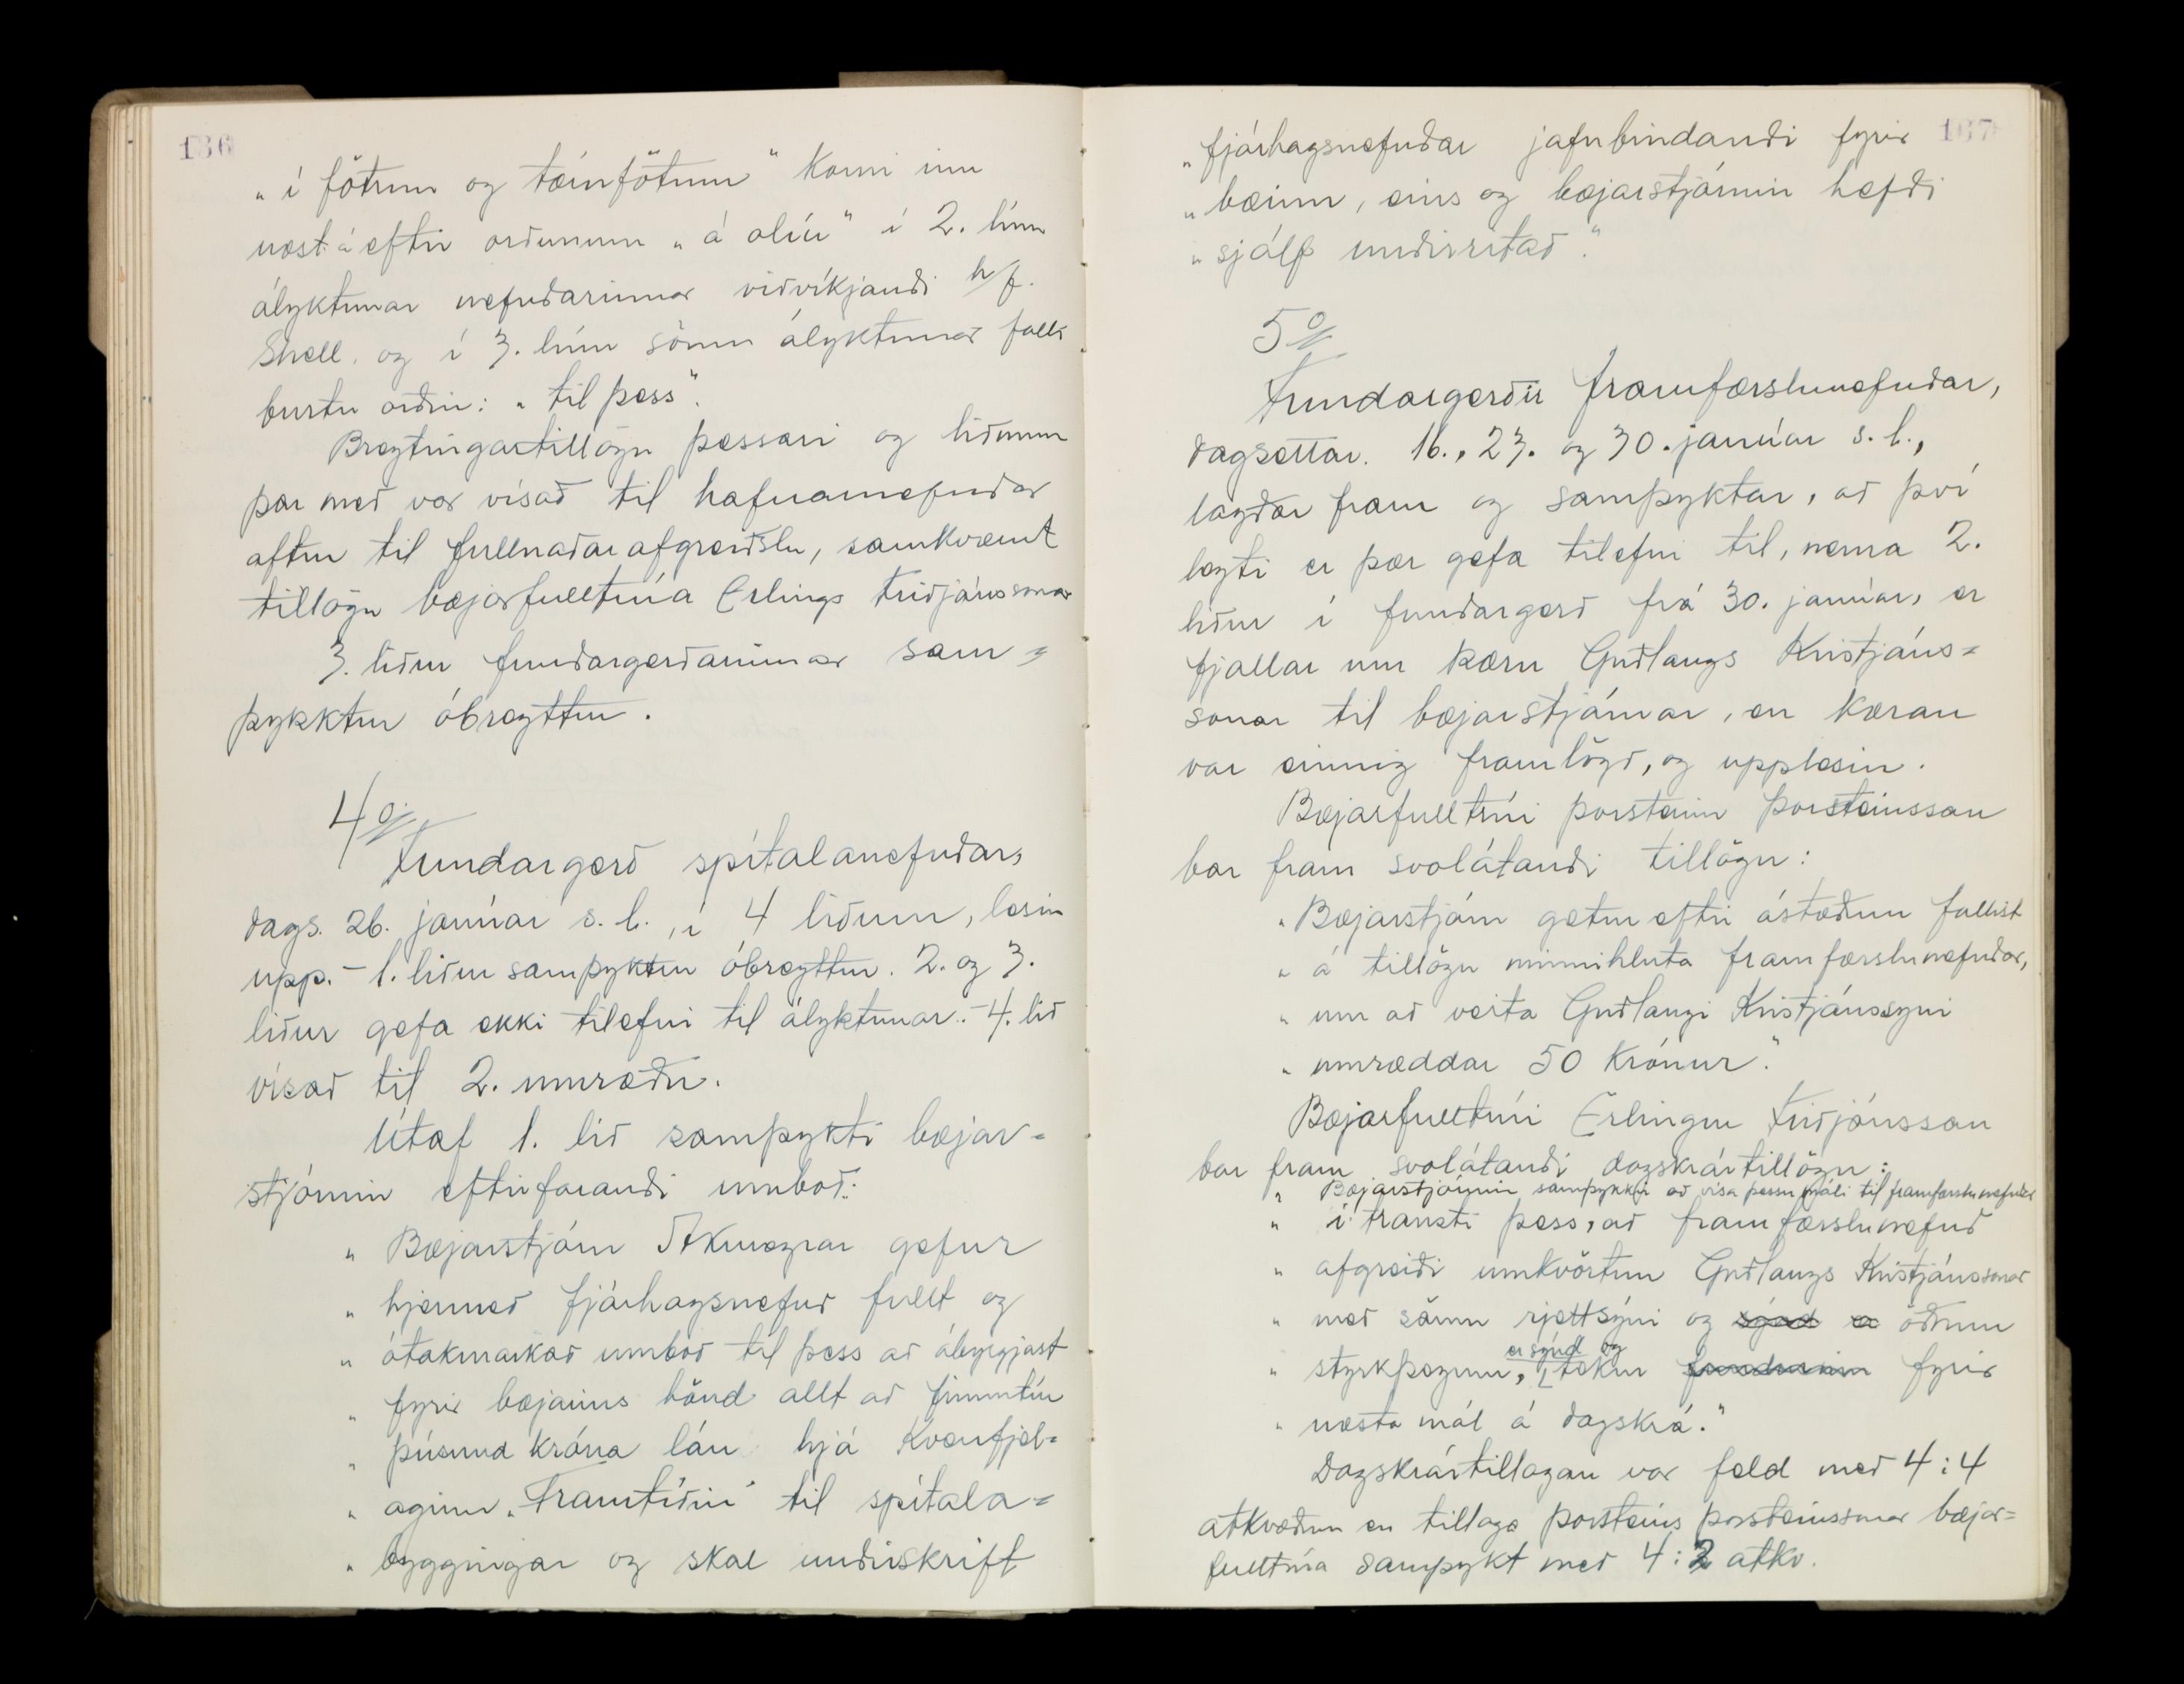 136
„í fötum og tæinfötum" komi inn
næst á eftir orðunum „á olíu" í 2. línu
ályktunar nefndarinnar viðvíkjandi h/f.
Shell. og í 3. línu sömu ályktunar falli
burtu orðin: „til þess".
Breytingartillögu þessari og liðunum
þar með var vísað til hafnarnefndar
aftur til fullnaðarafgreiðslu, samkvæmt
tillögu bæjarfulltrúa Erlings Friðjónssonar
3. liður fundargerðarinnar sam=
þykktur óbreyttur.
4%
Fundargerð spítalanefndar,
dags. 26. janúar s.l., í 4 liðum, lesin
upp. – 1. liður samþyktur óbreyttur. 2. og 3.
liður gefa ekki tilefni til ályktunar. – 4. lið
vísað til 2. umræðu.
Útaf 1. lið samþykti bæjar=
stjórnin eftirfarandi umboð:
„ Bæjarstjórn Akureyrar gefur
„ hjermeð fjárhagsnefnd fullt og
„ ótakmarkað umboð til þess að ábyrgjast
„ fyrir bæjarins hönd allt að fimmtíu
„ þúsund króna lán hjá Kvenfjel=
„ aginu „Framtíðin" til spítala=
„ byggingar og skal undirskrift
167
„ fjárhagsnefndar jafnbindandi fyrir
„ bæinn, eins og bæjarstjórnin hefði
„ sjálf undirritað."
5%
Fundargerðir framfærslunefndar,
dagsettar. 16., 23. og 30. janúar s.l.,
lagðar fram og samþyktar, að því
leyti er þær gefa tilefni til, nema 2.
liður í fundargerð frá 30. janúar, er
fjallar um kæru Guðlaugs Kristjáns=
sonar til bæjarstjórnar, en kæran
var einnig framlögð, og upplesin.
Bæjarfulltrúi Þorsteinn Þorsteinsson
bar fram svolátandi tillögu:
„ Bæjarstjórn getur eftir ástæðum fallist
„ á tillögu minnihluta framfærslunefndar,
„ um að veita Guðlaugi Kristjánssyni
„ umræddar 50 krónur."
Bæjarfulltrúi Erlingur Friðjónsson
bar fram svolátandi dagskrártillögu:
„ Bæjarstjórnin samþykkir að vísa þessu máli til framfærslunefndar
„ í trausti þess, að framfærslunefnd
„ afgreiði umkvörtun Guðlaugs Kristjánssonar
„ með sömu rjettsýni og öðrum
er sýnd og
„ styrkþegum, tekur fyrir
„ næsta mál á dagskrá."
Dagskrártillagan var feld með 4:4
atkvæðum en tillaga Þorsteins Þorsteinssonar bæjar=
fulltrúa samþykt með 4:2 atkv.